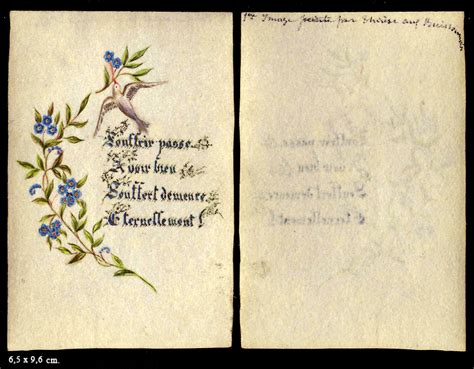 Souffrir passe.
Avoir bien
Souffert demeure.
Eternellement !
1re Image peinte par Thérèse aux Buissonnets
6,5 x 9,6 cm.